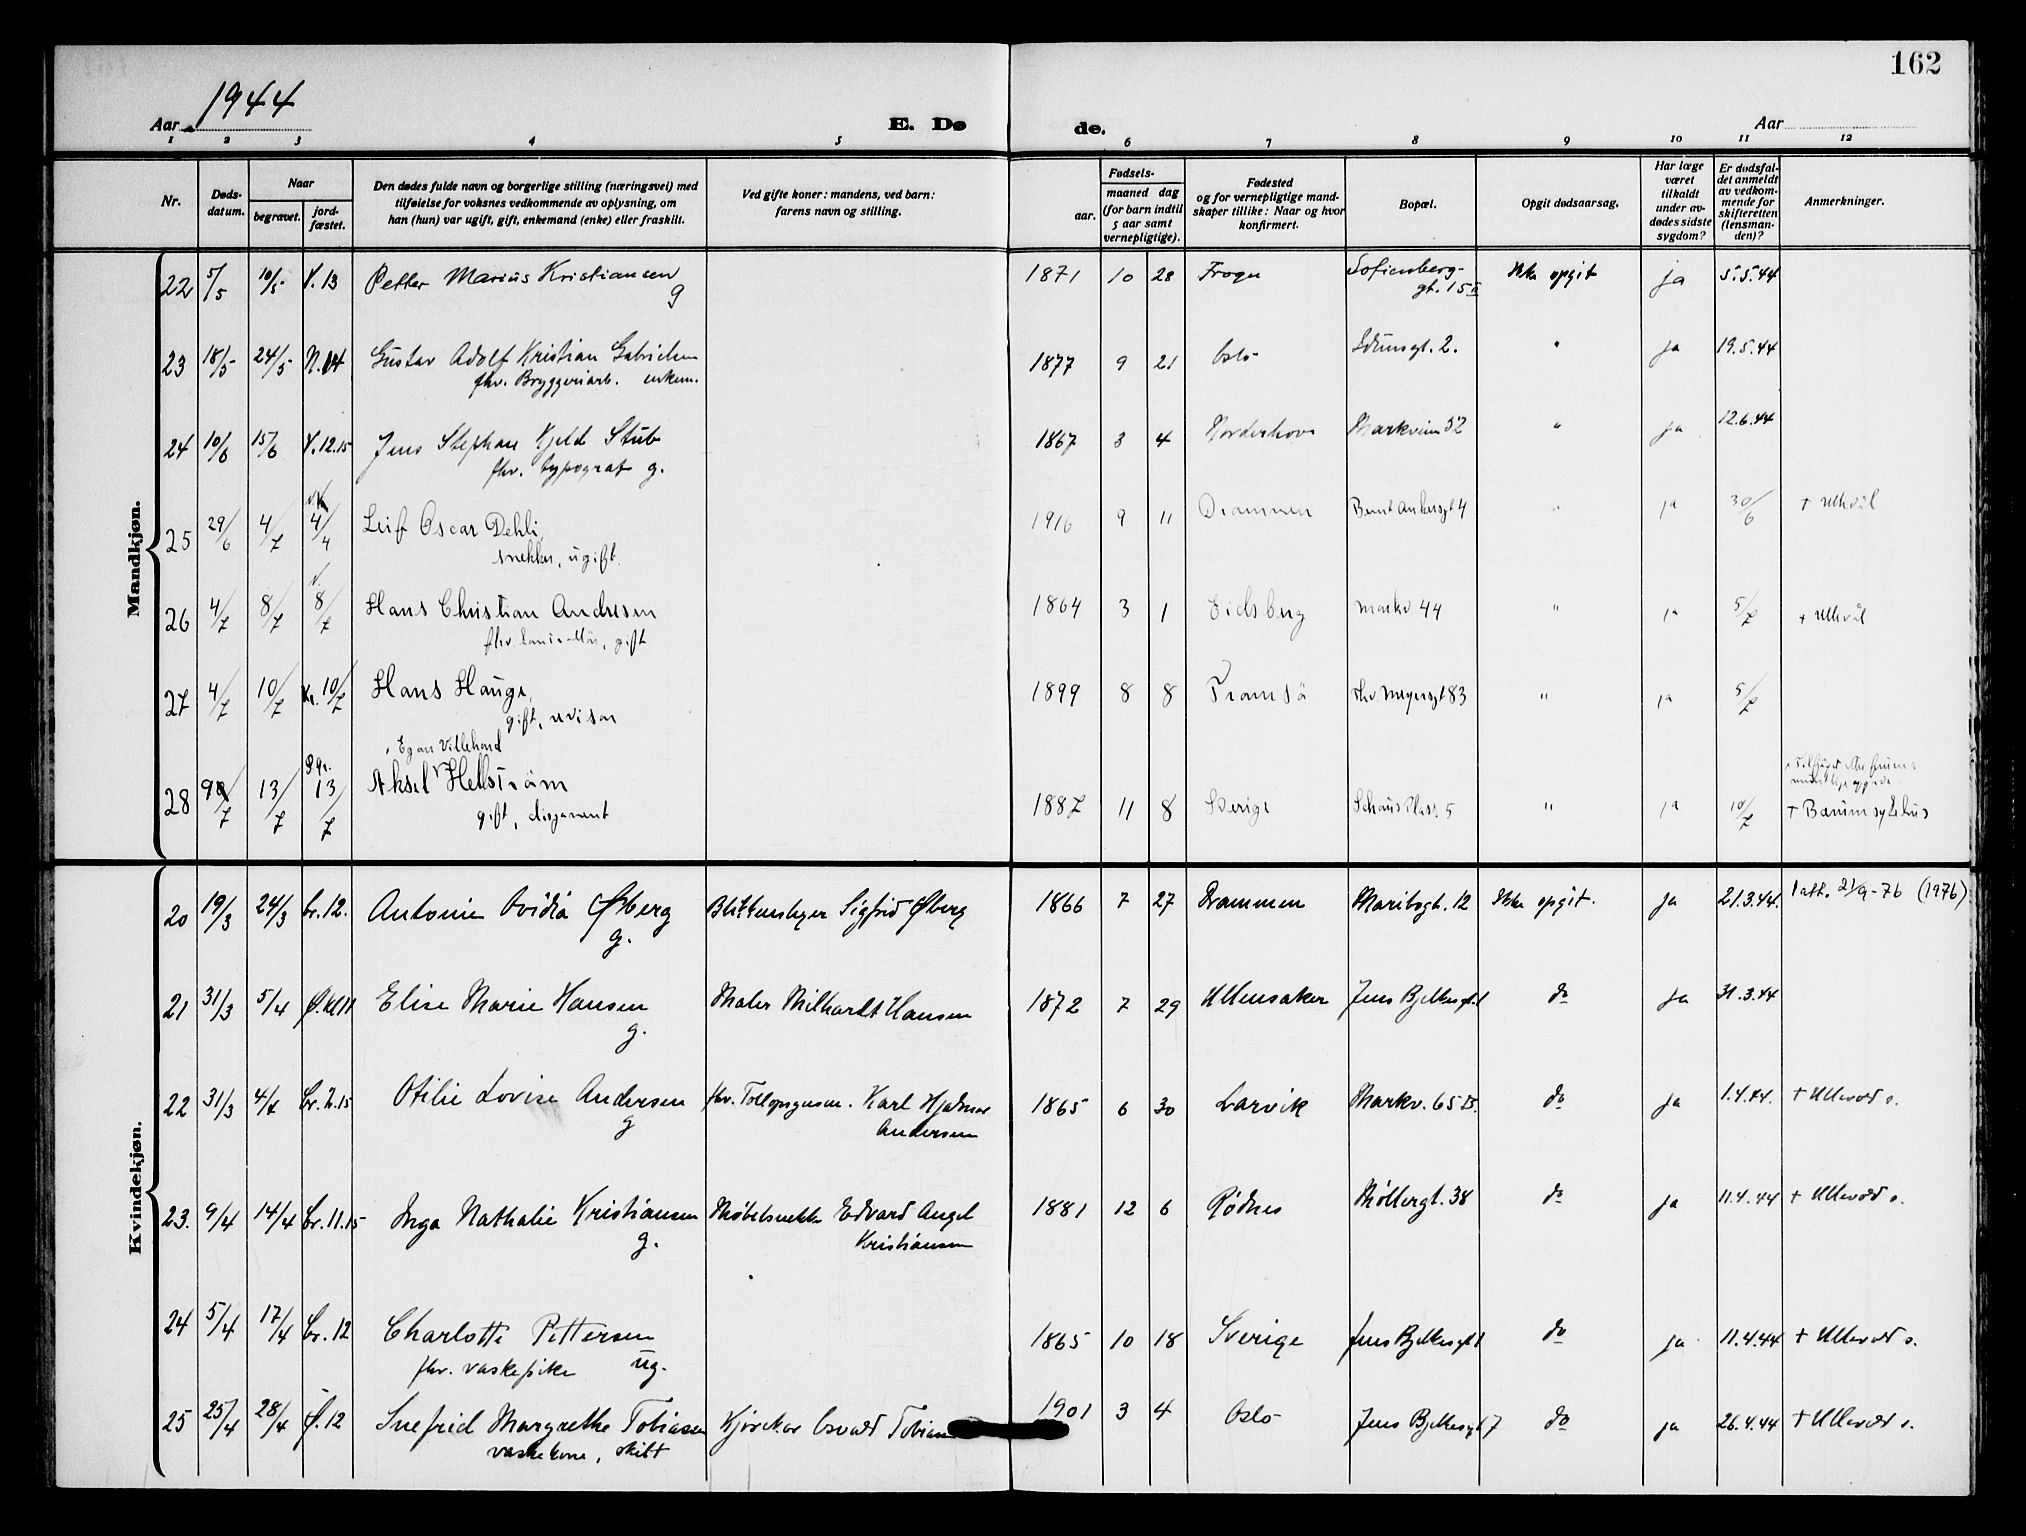 162
Aar 1944
E. Dø de.
Aar
1 2 3 4 5 6 7 8 9 10 11 12
Nr.
Døds-
datum.
Naar
begravet.
jord-
fæstet.
Den dødes fulde navn og borgerlige stilling (næringsvei) med
tilføielse for voksnes vedkommende av oplysning, om
han (hun) var ugift, gift, enkemand (enke) eller fraskilt.
Ved gifte koner: mandens, ved barn:
farens navn og stilling.
Fødsels-
aar.
maaned dag
(for barn indtil
5 aar samt
vernepligtige).
Fødested
og for vernepligtige mand-
skaper tillike: Naar og hvor
konfirmert.
Bopæl.
Opgit dødsaarsag.
Har læge
været
tilkaldt
under av-
dødes sidste
sygdom?
Er dødsfal-
det anmeldt
av vedkom-
mende for
skifteretten
(lensman-
den)?
Anmerkninger.
Mandkjøn.
22 5/5 10/5 V. 13 Petter Marius Kristiansen 1871 10 28 Frogn Sofienberg- Ikke opgit ja 5.5.44
g gt. 15 II
23 18/5 24/5 N. 14 Gustav Adolf Kristian Gabrielsen 1877 9 21 Oslo 2. " ja 19.5.44
fhv. Bryggeriarb. enkem.
24 10/6 15/6 V. 12.15 Jens Stephan Kjeld Stub 1867 3 4 Norderhov Markveien 52 " ja 12.6.44
fhv. typograf g.
25 29/6 4/7 4/4 Leif Oscar Dehli, 1916 9 11 Drammen Bernt Ankersgt 4 " ja 30/6 + Ullevål
snekker, ugift.
26 4/7 8/7 v. 8/7 Hans Christian Andresen 1864 3 1 Eidsberg Markv 44 " ja 5/7 + Ullevål
fhv. gift
27 4/7 10/7 Kr. 10/7 Hans Hauge, 1899 8 8 Tromsö Thv. Meyersgt 83 " ja 5/7
gift, revisor
Egon Villehard
28 9/7 13/7 13/7 Aksel Hellström 1887 11 8 Sverige Schous Plass 5 " ja 10/7 + Bærum sykehus
gift, disponent
Kvindekjøn.
20 19/3 24/3 Gr. 12. Antonie Ovidia Øberg Blikkenslager Sigfrid Øberg 1866 7 27 Drammen Maribogt. 12 Ikke opgit. ja 21.3.44. 1 att. 21/9-76 (1976)
g.
21 31/3 5/4 Ø. kl 11 Elise Marie Hansen Maler Milhardt Hansen 1872 7 29 Ullensaker Jens Bjelkesgt 1 do ja 31.3.44
g.
22 31/3 4/4 Gr. 2.15 Otilie Lovise Andersen fhv. Tollopsynsm. Karl Hjalmar 1865 6 30 Larvik Markv. 65 B. do ja 1.4.44. + Ullevål s.
g Andersen
23. 9/4 14/4 Gr. 11.15 Inga Nathalie Kristiansen Møbelsnekker Edvard Angel 1881 12 6 Rødnes Møllergt. 38 do ja 11.4.44 + Ullevål s.
g. Kristiansen
24 5/4 17/4 Gr. 12 Charlotte Pettersen 1865 10 18 Sverige Jens Bjelkesgt 1 do ja 11.4.44 + Ullevål s.
fhv. vaskepike ug.
25 25/4 28/4 Ø. 12 Snefrid Margrethe Tobiassen Kjørekar Osvald Tobiassen 1901 3 4 Oslo Jens Bjelkesgt 7 do ja 26.4.44 + Ullevål s.
vaskekone, skilt